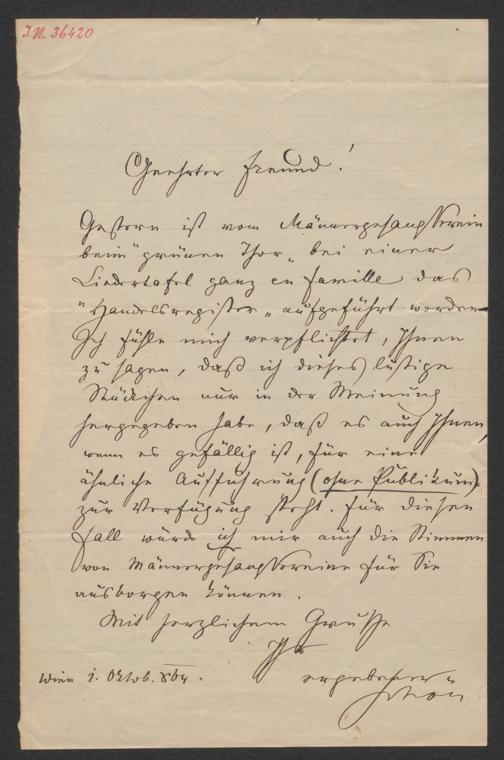 I.N. 36420
Geehrter Freund!
Gestern ist vom Männergesangverein
beim "grünen Thor" bei einer
Liedertafel ganz en famille das
"Handelsregister" aufgeführt worden
Ich fühle mich verpflichtet, Ihnen
zu sagen, daß ich dieses lustige
Stückchen nur in der Meinung
hergegeben habe, daß es auch Ihnen,
wenn es gefällig ist, für eine
ähnliche Aufführung (ohne Publikum)
zur Verfügung steht. Für diesen
Fall würde ich mir auch die Stimmen
vom Männergesangvereine für Sie
ausborgen können.
Mit herzlichem Gruße
Ihr
Wien 1. Oktob. 864. ergebener